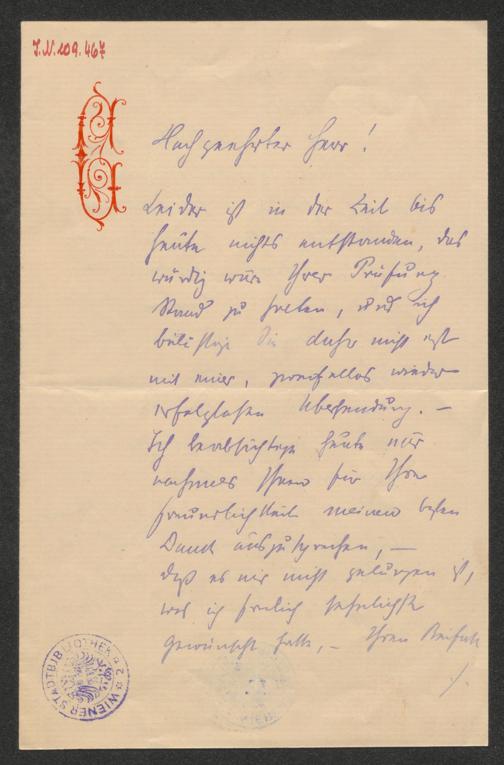 J.N. 109.467
Hochgeehrter Herr!
Leider ist in der Zeit bis
heute nichts entstanden, das
würdig wäre Ihrer Prüfung
Stand zu halten, und ich
belästige Sie daher nicht erst
mit einer, zweifellos wieder
erfolglosen Übersendung. –
Ich beabsichtige heute nur
nochmals Ihnen für Ihre
Freundlichkeit meinen besten
Dank auszusprechen, –
daß es mir nicht gelungen ist,
was ich freilich sehnlichst
gewünscht hatte, – Ihren Beifall
WIENER STADTBIBLIOTHEK